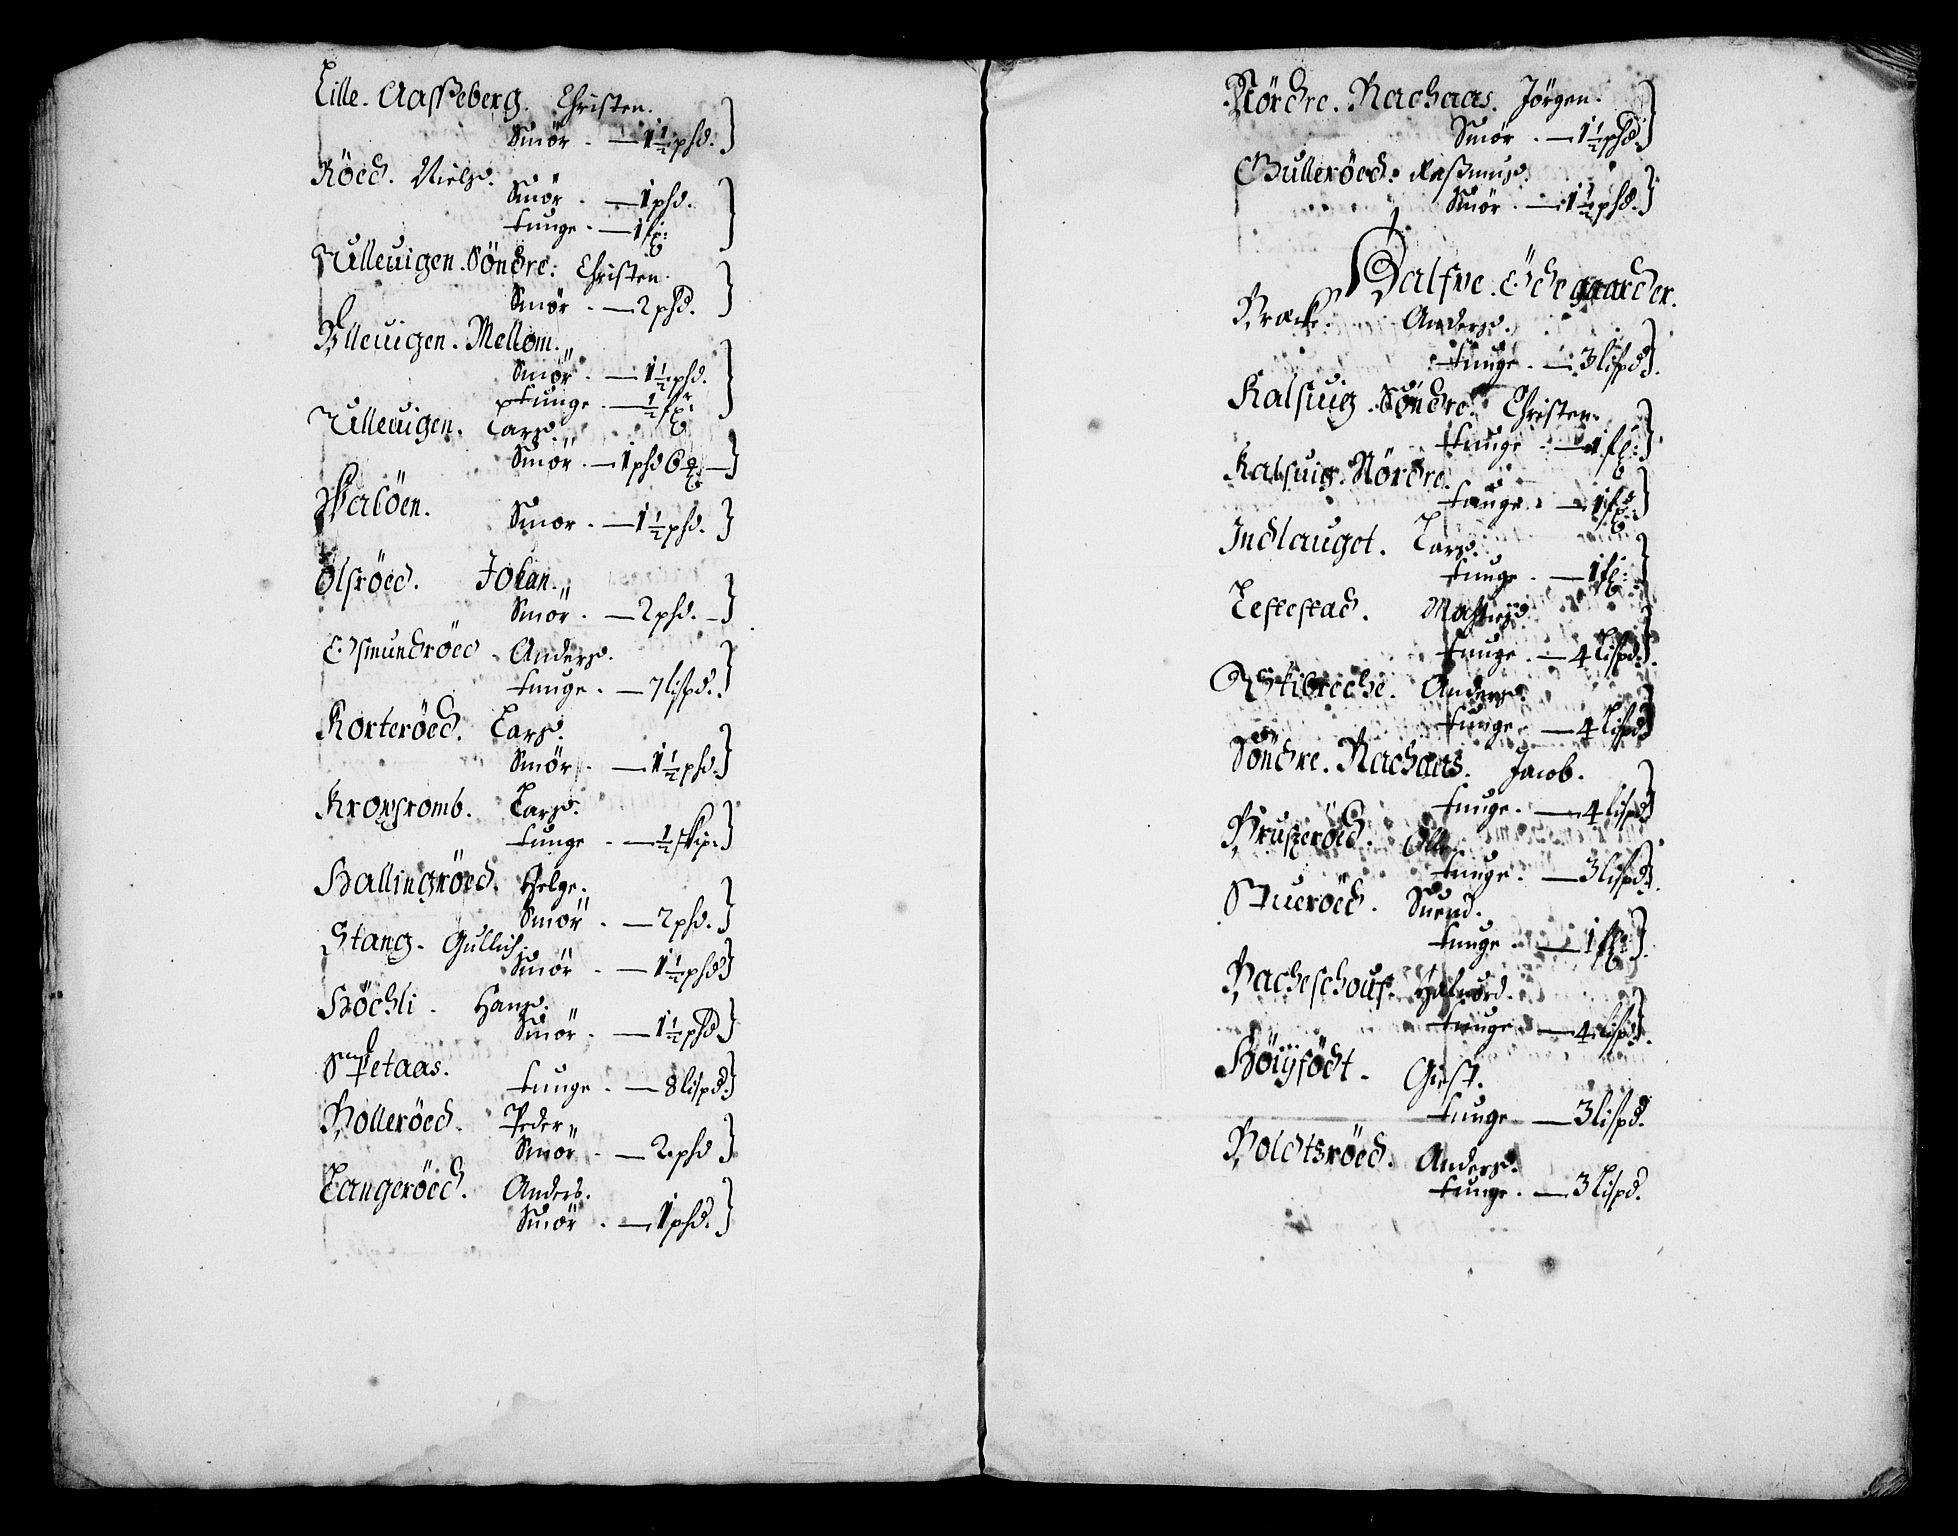 Lille. Aasseberg. Christen.
Smör. — 1½ phd.
Röed. Nielss.
Smör. — 1 phd.
tunge. — 1 fl:
Ulleuigen. Söndre: Christen.
Smör. — 2 phd.
Ulleuigen. Mellom.
Smör. — 1½ phd.
tunge. — ½ fl:
Ulleuigen. Larss.
Smör. — 1 phd 6
Walöen.
Smör. — 1½ phd.
Olsröed. Johan.
Smör. — 2 phd.
Osmundröed. Anderss.
tunge. — 7 lispd.
Korteröed. Larss.
Smör. — 1½ phd.
Larss.
tunge. — ½ skip:
Hallingröed. Helge.
Smör. — 2 phd.
Stang. Gullich.
Smör. — 1½ phd
Höchli. Hanss.
Smör. — 1½ phd
Spetaas.
tunge. — 8 lispd.
Bolleröed. Peder
Smör. — 2 phd
Tangeröed. Anders.
Smör. — 1 phd.
Nördre. Rachaas. Jörgen.
Smör. — 1½ phd.
Gulleröed. Rassmuss.
Smör. — 1½ phd.
Halfve. Ödegaarder.
Bræcke. Anderss.
tunge. — 3 lispd.
Kalsuig. Söndre. Christen.
tunge. — 1 fl:
Kalsuig. Nördre.
tunge. — 1 fl:
Indlauget. Larss.
tunge. — 1 fl:
Lefsestad. Mathiss.
tunge. — 4 lispd.
Anderss.
tunge. — 4 lispd
Söndre. Rachaas. Jacob.
tunge. — 4 lispd
Brusseröed. Olle.
tunge. — 3 lispd.
Stueröed. Suend.
tunge. — 1 fl:
Halvord.
tunge. — 4 lispd.
Giest.
tunge — 3 lispd.
Boldtsröed. Anderss.
tunge. — 3 lispd.